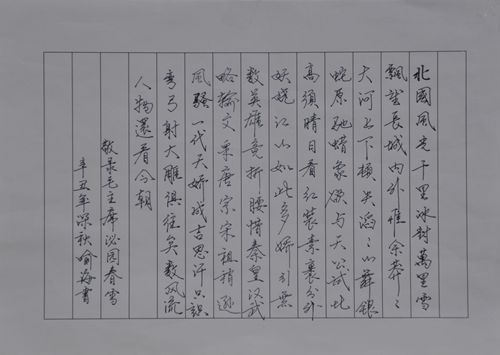 北國風光千里冰封萬里雪
飄望長城内外惟余莽々
大河上下頓失滔々山舞銀
蛇原馳蜡象欲与天公試比
高須晴日看红装素裹分外
妖娆江山如此多娇引無
数英雄竞折腰惜秦皇汉武
略输文采唐宗宋祖稍逊
風骚一代天骄成吉思汗只識
弯弓射大雕俱往矣数风流
人物還看今朝
敬录毛主席沁园春雪
辛丑年深秋喻海書